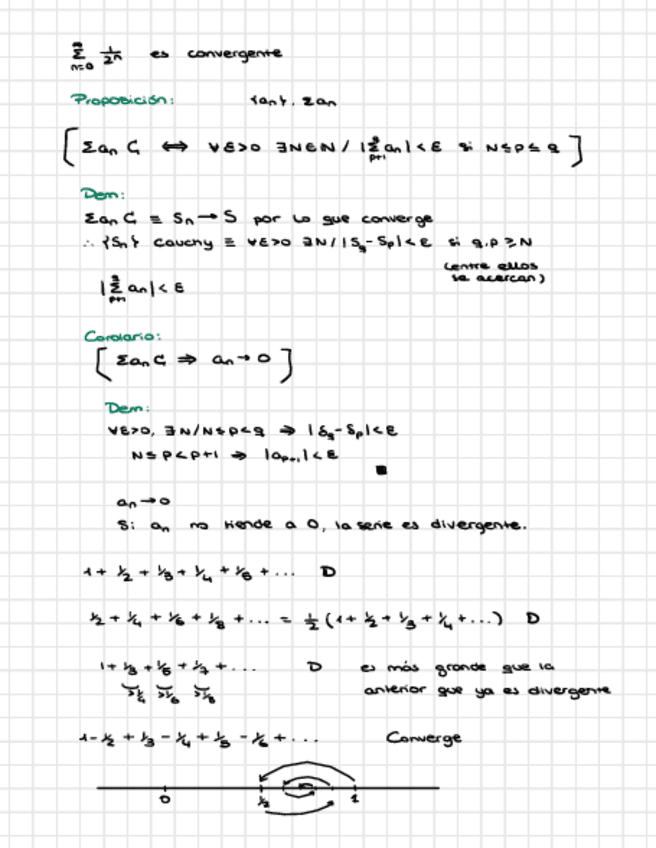 ∑_{n=0}^{∞} 1/2ⁿ es convergente
Proposición: {an}, Σan
[Σan C ⟺ ∀ε>0 ∃N∈ℕ / |∑_{p+1}^{q} an| < ε si N≤p≤q]
Dem:
Σan C ≡ Sn → S por lo que converge
∴ {Sn} Cauchy ≡ ∀ε>0 ∃N / |Sq - Sp| < ε si q,p ≥ N
(entre ellos
se acercan)
|∑_{p+1}^{q} an| < ε
Corolario:
[Σan C ⇒ an → 0]
Dem:
∀ε>0, ∃N / N≤p<q ⇒ |Sq - Sp| < ε
N≤p<p+1 ⇒ |a_{p+1}| < ε
■
an → 0
Si an no tiende a 0, la serie es divergente.
1 + 1/2 + 1/3 + 1/4 + 1/5 + ... D
1/2 + 1/4 + 1/6 + 1/8 + ... = 1/2 (1 + 1/2 + 1/3 + 1/4 + ...) D
1 + 1/3 + 1/5 + 1/7 + ... D es más grande que la
>1/4 >1/6 >1/8 anterior que ya es divergente
1 - 1/2 + 1/3 - 1/4 + 1/5 - 1/6 + ... Converge
0 1/2 1